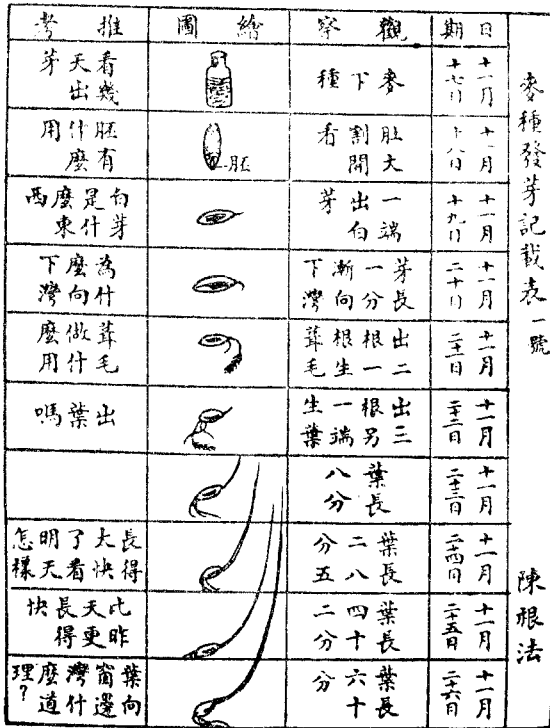 麥種發芽記載表 一號
陳根法
日期
觀察
繪圖
推考
十一月十七日
麥下種
看幾天出芽
十一月十八日
肚大割開看
胚
胚有什麼用
十一月十九日
一端出白芽
白芽是什麼東西
十一月二十日
芽長一分漸向下灣
為什麼向下灣
十一月二十一日
出二根一根生茸毛
茸毛做什麼用
十一月二十二日
出三根另一端生葉
出葉嗎
十一月二十三日
葉長八分
十一月二十四日
葉長二八分五
長得大快了看明天怎樣
十一月二十五日
葉長四十二分
比昨天更長得快
十一月二十六日
葉長六十分
葉向窗邊灣什麼道理？